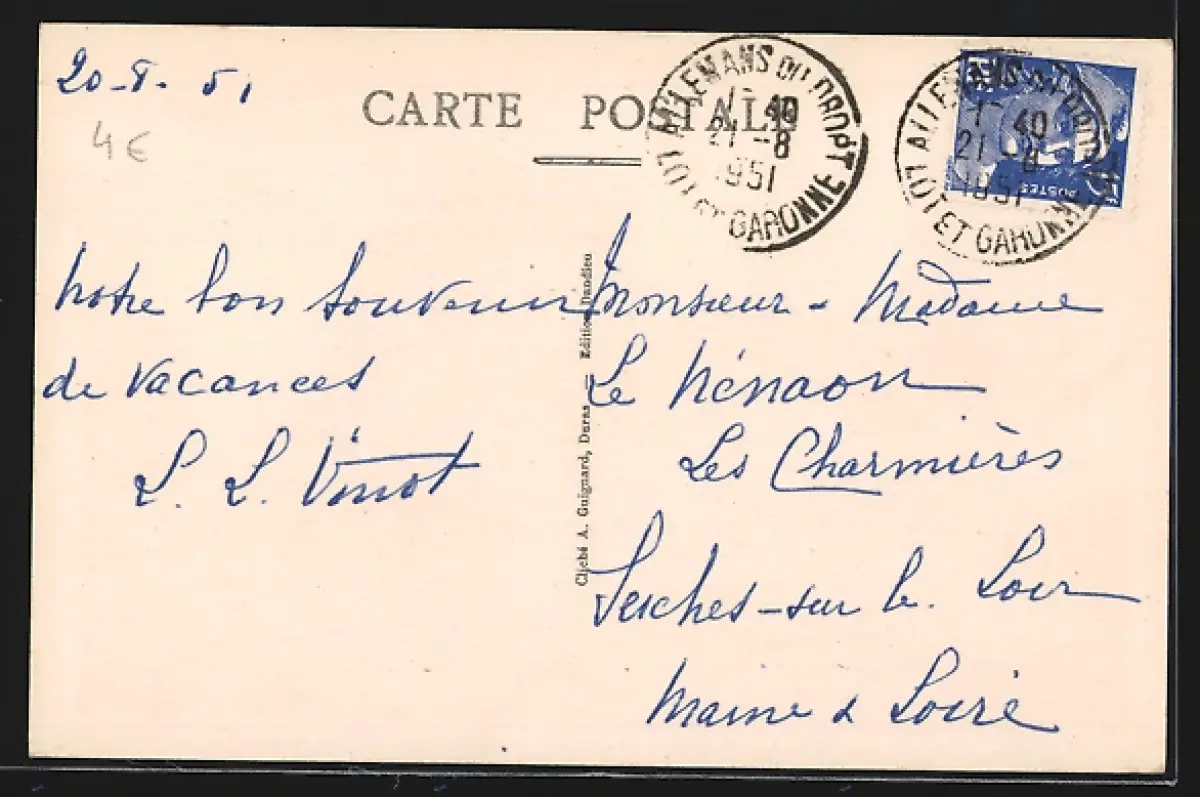 20-8-51
4€
CARTE POSTALE
ALLEMANS DU DROPT
1-40
21-8
1951
LOT ET GARONNE
ALLEMANS DU DROPT
1-40
21-8
1951
LOT ET GARONNE
POSTES
notre bon souvenir
de vacances
L. L. Vinot
Cliché A. Guignard, Duras — Edition Dandieu
Monsieur - Madame
Le Nénaon
Les Charmières
Seiches-sur le. Loir
Maine & Loire